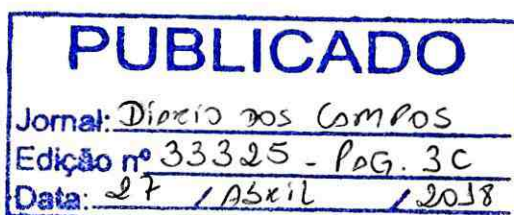 PUBLICADO
Jornal: Diário dos Campos
Edição nº 33325 - PAG. 3C
Data: 27 / Abril / 2018